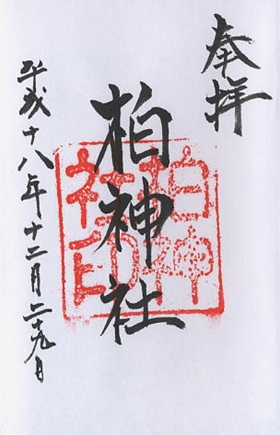 奉拝
柏神社
平成十八年十二月二十九日
柏神
社之印